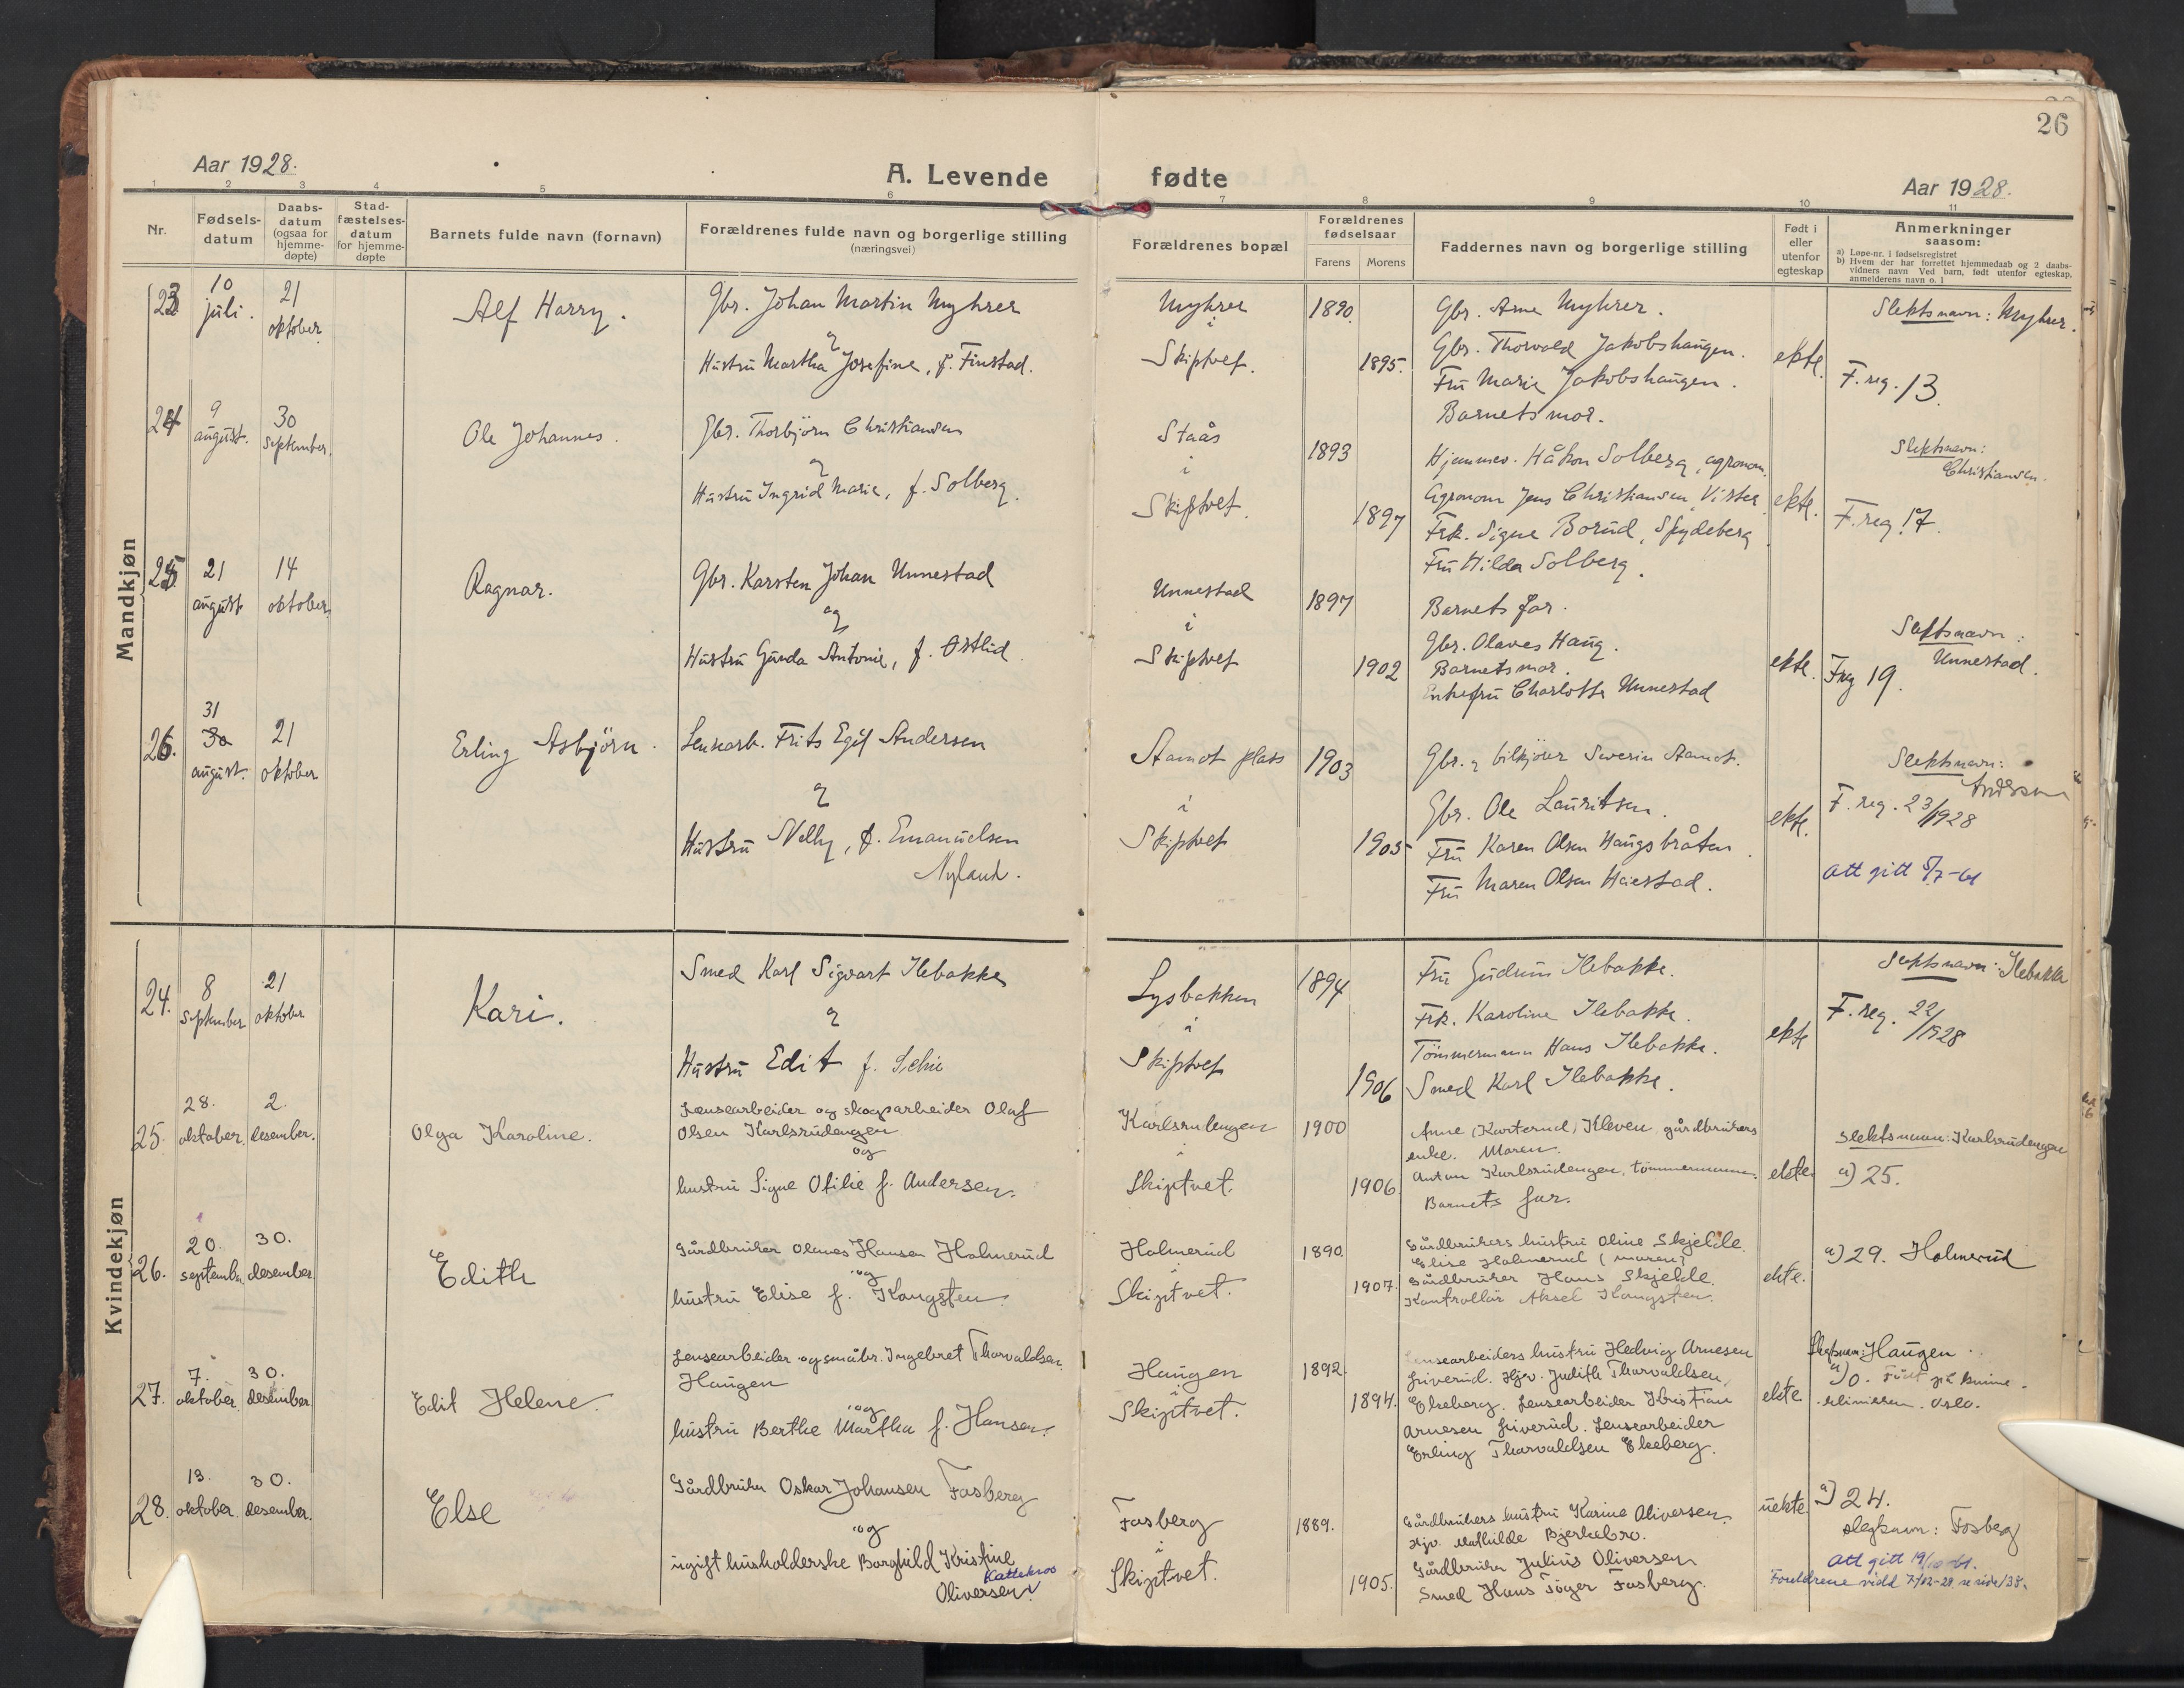 26
Aar 1928.
A. Levende fødte
Aar 1928.
1 2 3 4 5 6 7 8 9 10 11
Nr.
Fødselsdatum
Daabsdatum (ogsaa for hjemmedøpte)
Stadfæstelsesdatum for hjemmedøpte
Barnets fulde navn (fornavn)
Forældrenes fulde navn og borgerlige stilling
(næringsvei)
Forældrenes bopæl
Forældrenes fødselsaar
Farens Morens
Faddernes navn og borgerlige stilling
Født i eller utenfor egteskap
Anmerkninger
saasom:
a) Løpe-nr. i fødselsregistret
b) Hvem der har forrettet hjemmedaab og 2 daabsvidners navn Ved barn, født utenfor egteskap, anmelderens navn o. l
Mandkjøn
23
10 juli.
21 oktober
Alf Harry.
Gbr. Johan Martin Myhrer
&
Hustru Martha Josefine, f. Finstad.
Myhrer
i
Skiptvet.
1890.
1895.
Gbr. Arne Myhrer.
Gbr. Thorvald Jakobshaugen.
Fru Marie Jakobshaugen.
Barnets mor.
ekte.
Slektsnavn: Myhrer.
F. reg. 13.
24
9 august.
30 september.
Ole Johannes.
Gbr. Thorbjörn Christiansen
&
Hustru Ingrid Marie, f. Solberg.
Staås
i
Skiptvet.
1893
1897
Hjemmev. Håkon Solberg, agronom.
Agronom Jens Christiansen, Vister
Frk. Signe Borud, Spydeberg
Fru Hilda Solberg.
ekte.
Slektsnavn:
Christiansen.
F. reg. 17.
25
21 august
14 oktober
Ragnar.
Gbr. Karsten Johan Unnestad
og
Hustru Gunda Antonie, f. Østlid.
Unnestad
i
Skiptvet
1897
1902
Barnets far.
Gbr. Olaves Haug.
Barnets mor.
Enkefru Charlotte Unnestad
ekte.
Slektsnavn:
Unnestad.
F reg 19.
26.
31
30 august.
21 oktober
Erling Asbjörn.
Lensearb. Frits Egil Andersen
&
Hustru Nelly, f. Emanuelsen
Nyland.
Aamot plass
i
Skiptvet
1903
1905
Gbr. & bilkjörer Severin Aamot.
Gbr. Ole Lauritsen.
Fru Karen Olsen Haugsbråten.
Fru Maren Olsen Haiestad.
ekte.
Slektsnavn:
Andersen
F. reg. 23/1928
att gitt 5/7-61
Kvindekjøn
24.
8 september
21 oktober
Kari.
Smed Karl Sigvart Ilebakke
&
Hustru Edit f. Selni
Lysbakken
i
Skiptvet
1894
1906
Fru Gudrun Ilebakke.
Frk. Karoline Ilebakke.
Tömmermann Hans Ilebakke.
Smed Karl Ilebakke.
ekte
Slektsnavn: Ilebakke
F. reg. 22/1928
25.
28. oktober.
2. desember.
Olga Karoline.
Lensearbeider og skogsarbeider Olaf
Olsen Karlsrudengen
og
hustru Signe Otilie f. Andersen.
Karlsrudengen
i
Skiptvet.
1900
1906.
Anne (Karterud) Kleven, gårdbrukers
enke. Moren.
Anton Karlsrudengen, tömmermann.
Barnets far.
ekte.
Slektsnavn: Karlsrudengen
a) 25.
26.
20. september.
30. desember
Edith
Gårdbruker Olaves Hansen Holmerud
og
hustru Elise f. Kongsten.
Holmerud
i
Skiptvet.
1890.
1907.
Gårdbrukers hustru Oline Skjelle.
Elise Holmerud (moren)
Gårdbruker Hans Skjelle.
Kontrollör Aksel Kongsten.
ekte.
a) 29. Holmerud
27.
7. oktober.
30. desember
Edit Helene.
Lensearbeider og småbr. Ingebret Thorvaldsen
Haugen
og
hustru Berthe Martha f. Hansen.
Haugen
i
Skiptvet.
1892.
1894.
Lensearbeiders hustru Hedvig Arnesen
Griverud. Hjv. Judith Thorvaldsen,
Ekeberg. Lensearbeider Kristian
Arnesen Griverud. Lensearbeider
Erling Thorvaldsen Ekeberg.
ekte.
Slektsnavn: Haugen
a) 0. Födt på kvinneklinikken. Oslo.
28.
13. oktober.
30. desember.
Else
Gårdbruker Oskar Johansen Fosberg
og
ugift husholderske Borghild Kristine
Kattekroo
Oliversen
Fosberg
i
Skiptvet.
1889.
1905.
Gårdbrukers hustru Karine Oliversen.
Hjv. Mathilde Bjerkebro.
Gårdbruker Julius Oliversen
Smed Hans Töger Fosberg.
uekte.
a) 24.
slegtsnavn: Fosberg
att gitt 19/10-61.
Foreldrene viedd 7/12-28. se side 138.